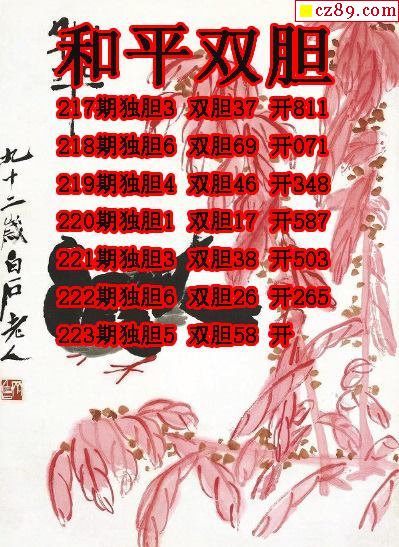 cz89.com
和平双胆
217期独胆3 双胆37 开811
218期独胆6 双胆69 开071
219期独胆4 双胆46 开348
220期独胆1 双胆17 开587
221期独胆3 双胆38 开503
222期独胆6 双胆26 开265
223期独胆5 双胆58 开
九十二岁白石老人